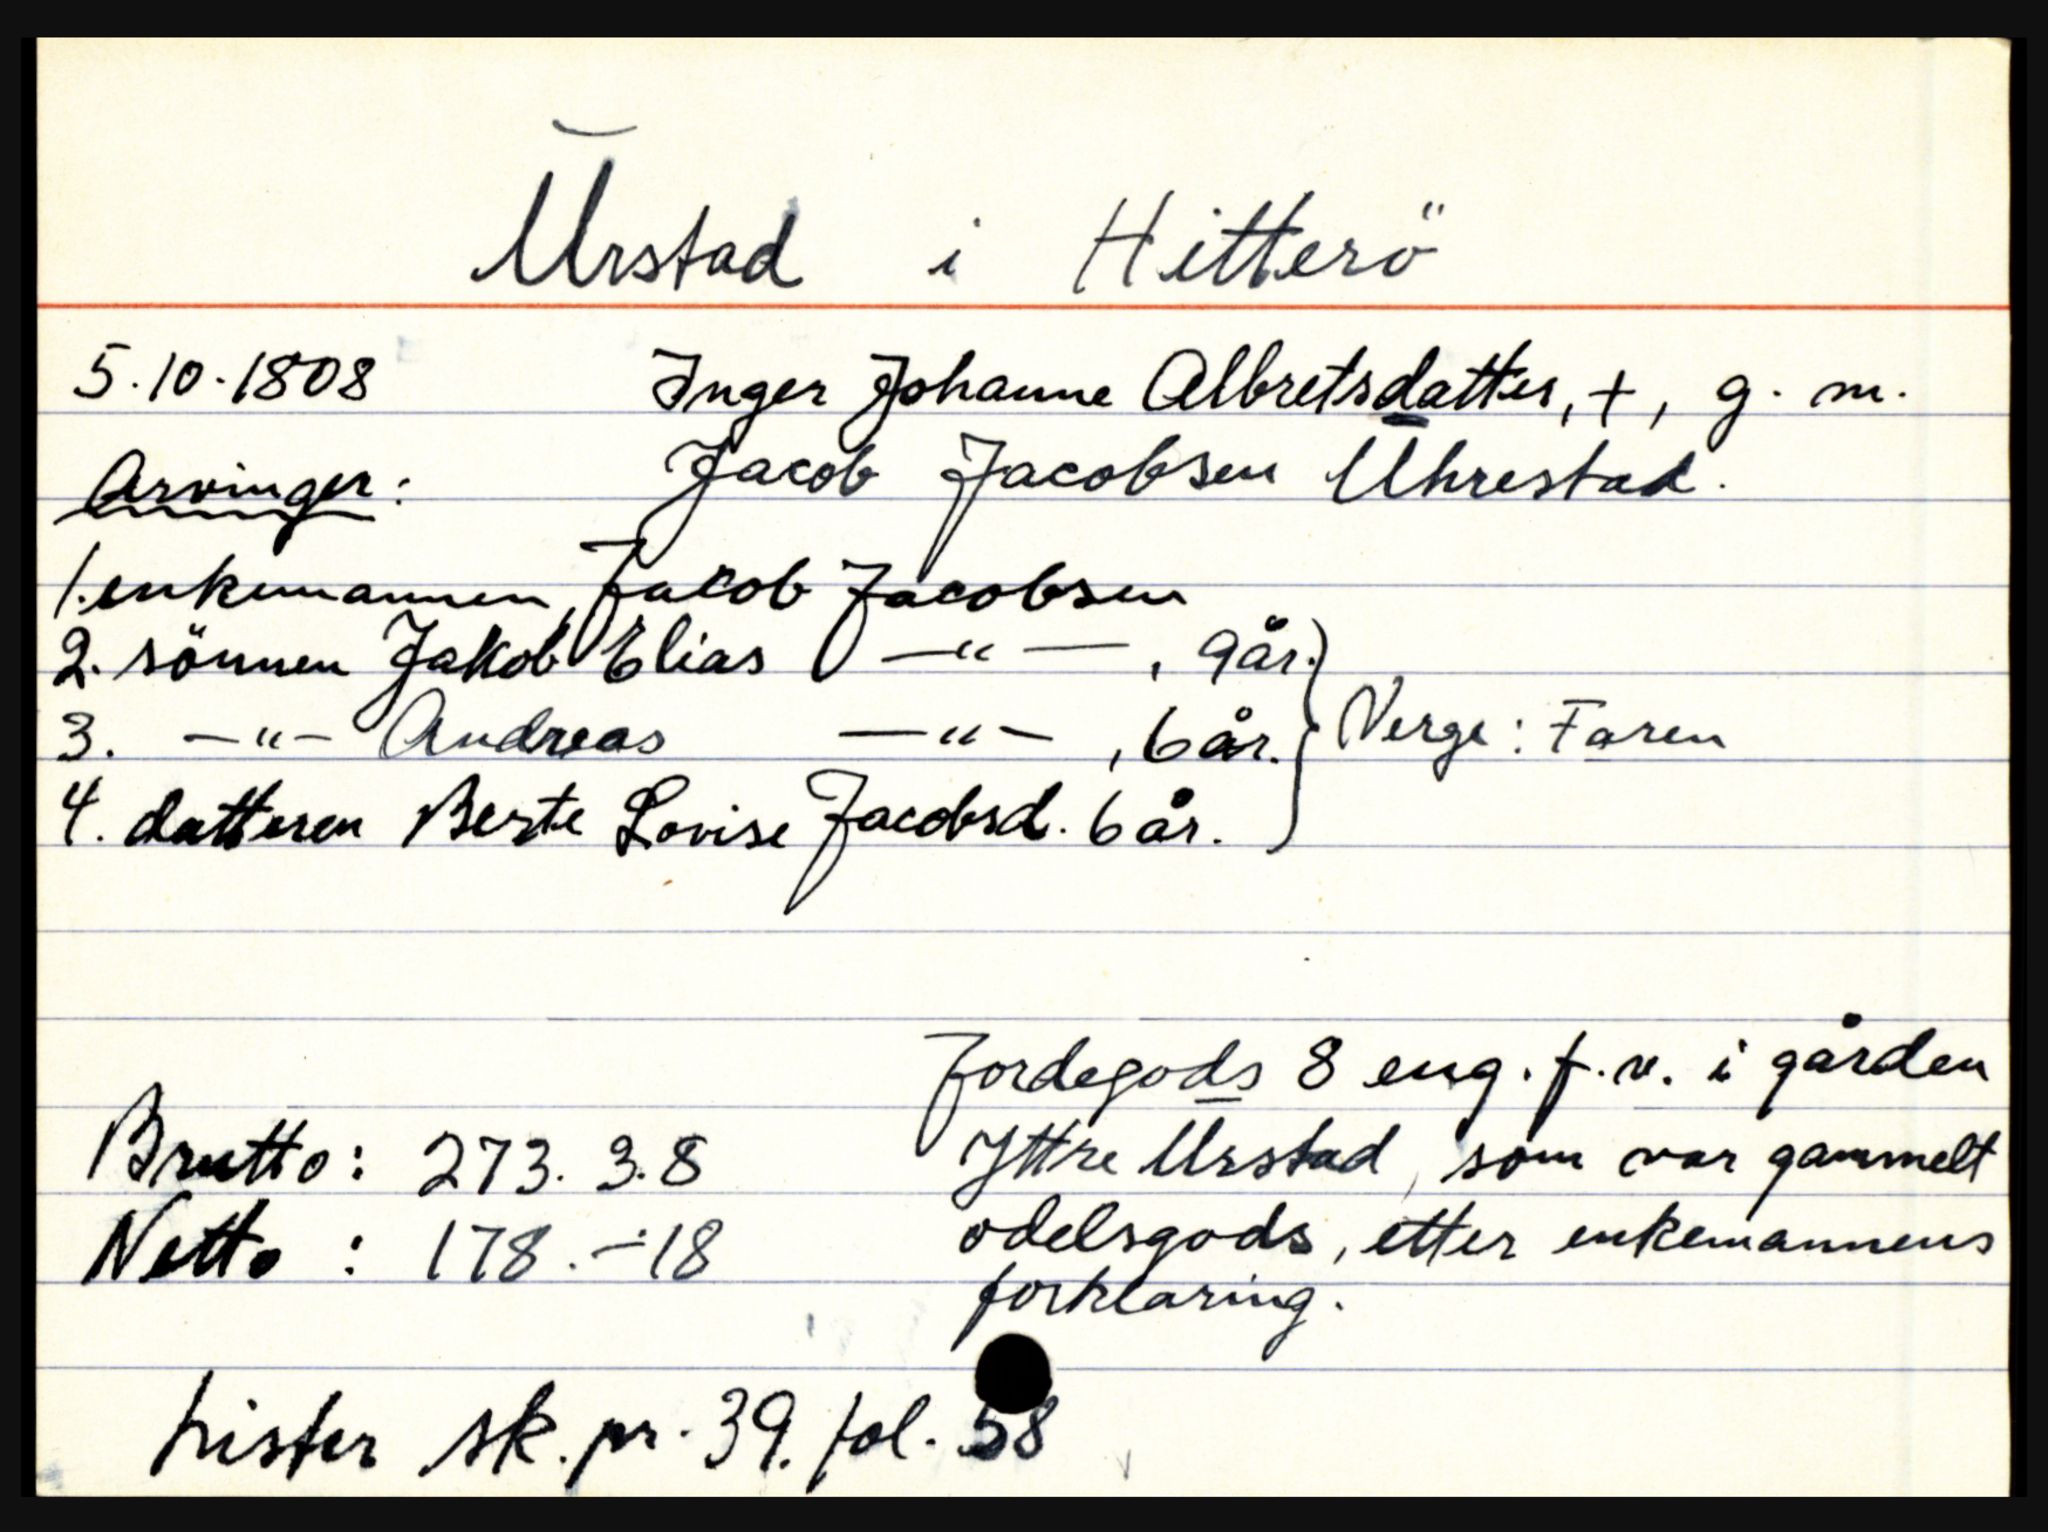 Urstad i Hitterö
5.10.1808 Inger Johanne Albretsdatter, +, g. m.
Arvinger: Jacob Jacobsen Uhrestad.
1. enkemannen, Jacob Jacobsen
2. sönnen Jakob Elias —"—, 9 år.
3. —"— Andreas —"—, 6 år. } Verge: Faren
4. datteren Berte Lovise Jacobsd. 6 år.
Jordegods 8 eng. f. v. i gården
Brutto: 273. 3. 8 Yttre Urstad, som var gammelt
Netto : 178. — 18 odelsgods, etter enkemannens
forklaring.
Lister sk. pr. 39. fol. 58